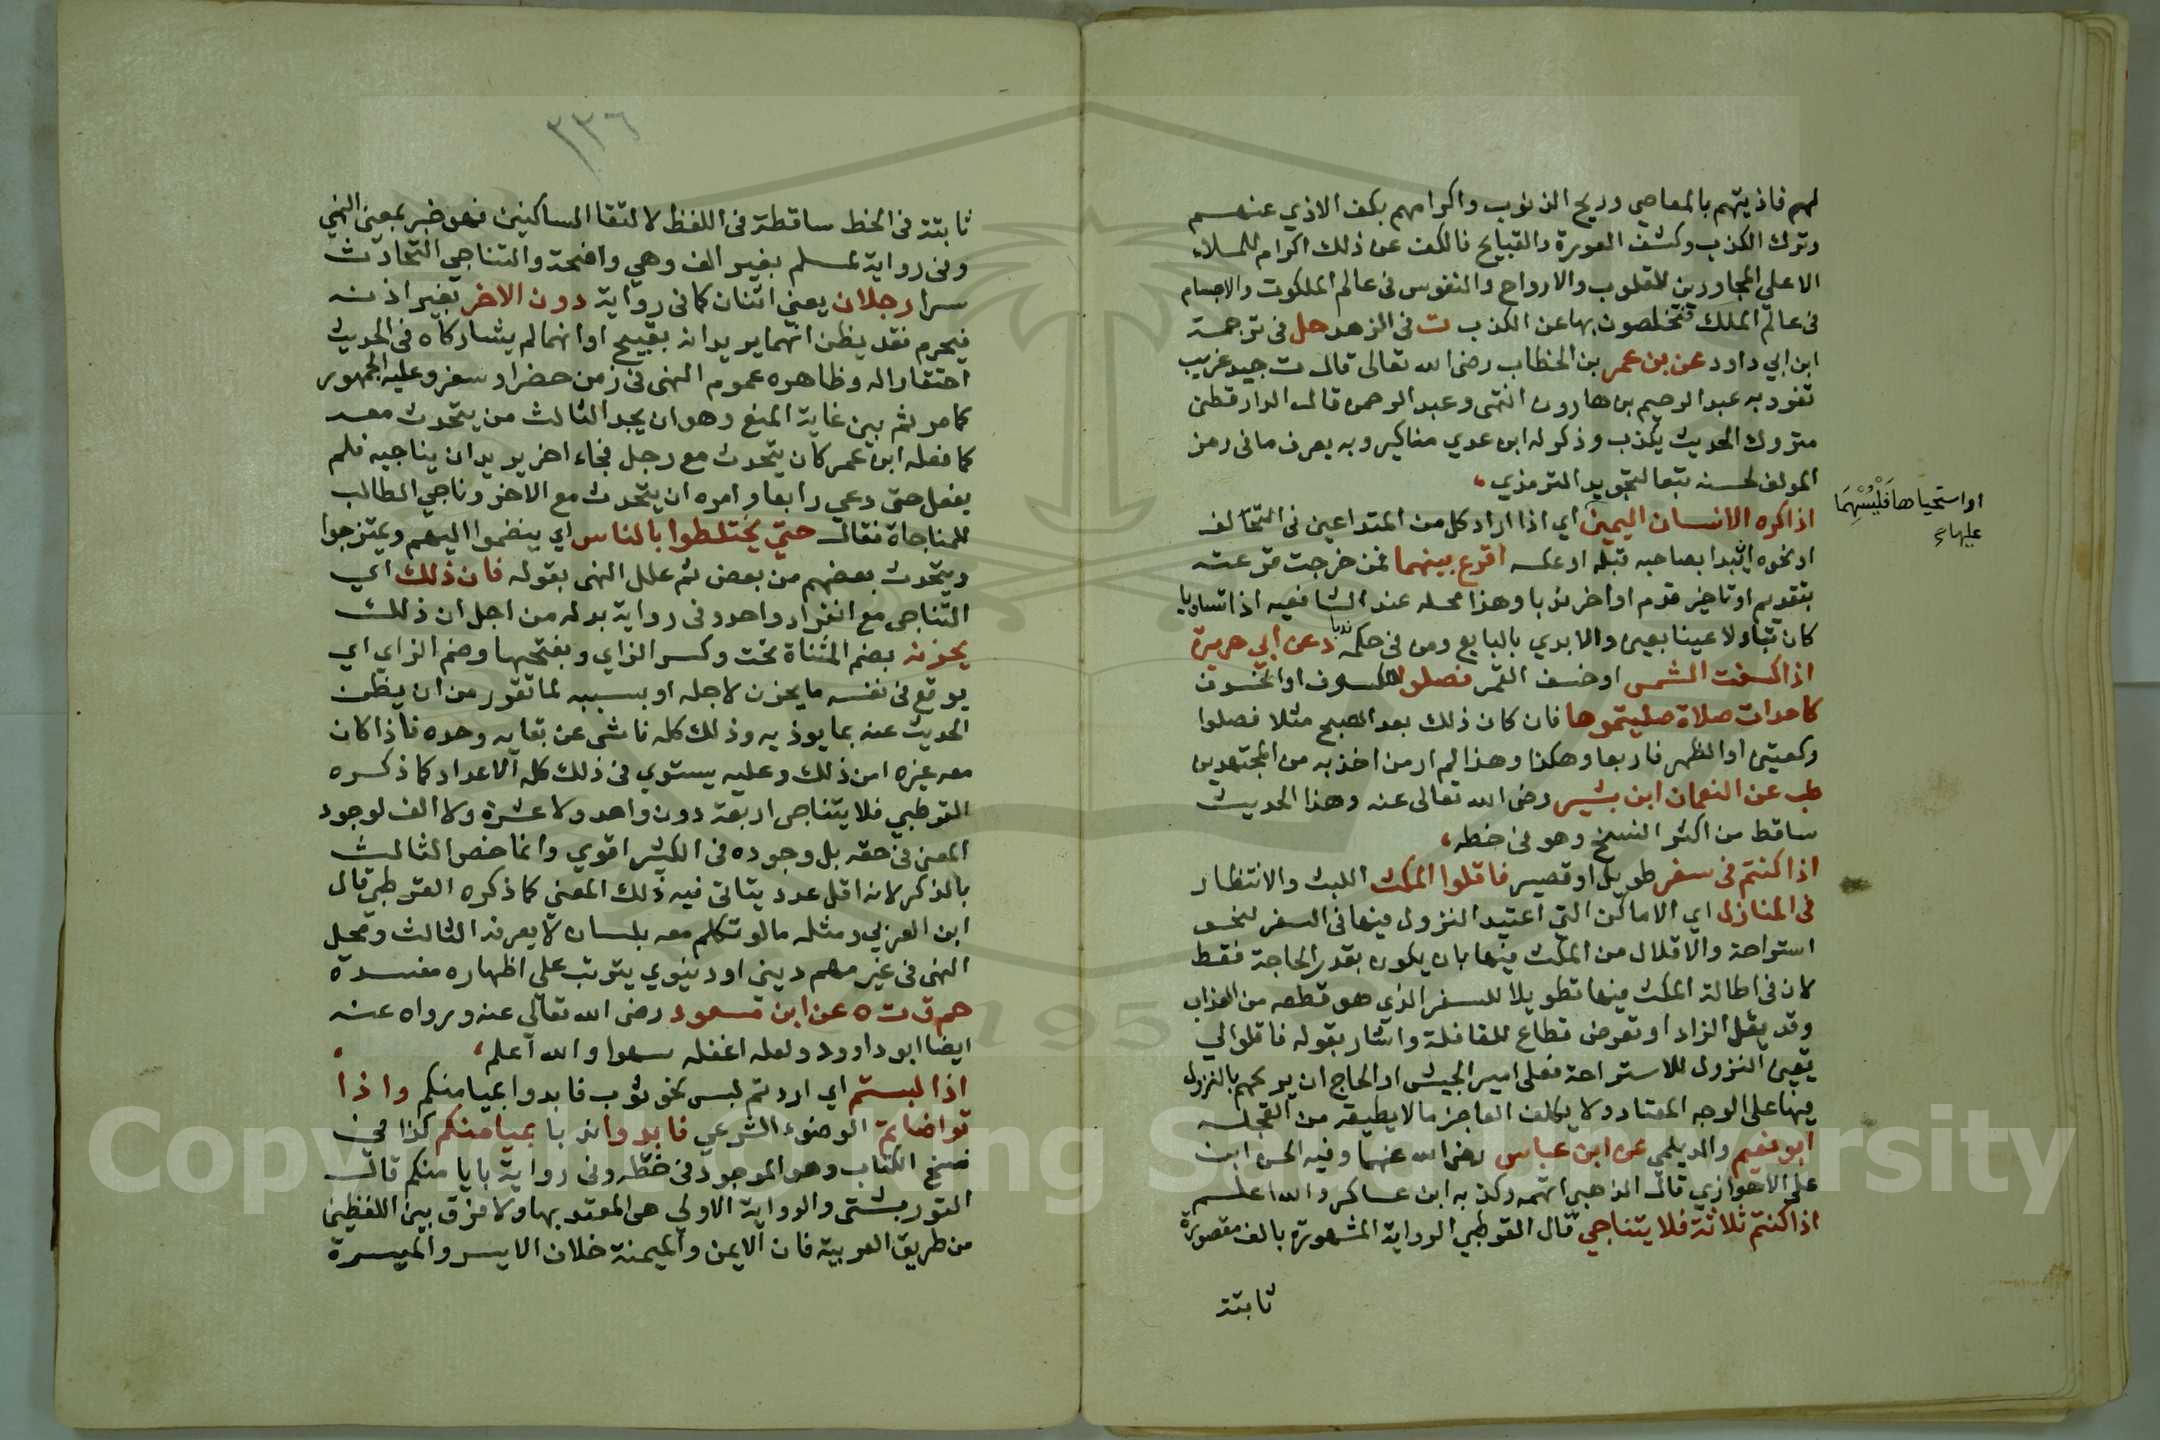 لهم فاذيتهم بالمعاصي وريح الذنوب واكرامهم بكف الاذي عنهم
وترك الكذب وكشف العورة والقبايح فالكف عن ذلك اكرام للملاء
الاعلي المجاورين للقلوب والارواح والنفوس في عالم الملكوت والاجسام
في عالم الملك فتخلصون بها عن الكذب ت في الزهد حل في ترجمة
ابن ابي داود عن بن عمر بن الخطاب رضى الله تعالى قال ت جيد غريب
تفرد به عبد الرحيم بن هارون انتهى وعبد الرحمن قال الدارقطني
متروك الحديث يكذب وذكر له ابن عدي مناكير وبه يعرف ما في رمز
المولف لحسنه تبعا لتجويد الترمذي
اذا كره الاثنان اليمين اي اذا اراد كل من المتداعيين في التحالف
او استحباها فليستهما
عليها
او نحوه ابتدا بصاحبه قبله او عكسه اقرع بينهما فمن خرجت قرعته
بتقديم او تاخير قدم او اخر ندبا وهذا محله عند الشافعيه اذا تساويا
كان تبادلا عينا بعين والا بدي بالبايع ومن في حكمه ندبا د عن ابي هريرة
اذا انكسفت الشمس او خسف القمر فصلوا للكسوف او الخسوف
كاحداث صلاة صليتموها فان كان ذلك بعد الصبح مثلا فصلوا
ركعتين او الظهر فاربعا وهكذا وهذا لم ار من اخذ به من المجتهدين
طب عن النعمان ابن بشير رضى الله تعالى عنه وهذا الحديث
ساقط من اكثر النسخ وهو في خطه
اذا كنتم في سفر طويل او قصير فاقلوا المكث اللبث والانتظار
في المنازل اي الاماكن التي اعتيد النزول فيها في السفر لنحو
استراحة والاقلال من المكث فيها بان يكون بقدر الحاجة فقط
لان في اطالة المكث فيها تطويلا للسفر الذي هو قطعه من العذاب
وقد يقل الزاد او تعرض قطاع للقافلة واشار بقوله فاقلوا الي
تعين النزول للاستراحة فعلى امير الجيش او الحاج ان يريحهم بالنزول
فيها على الوجه المعتاد ولا يكلف العاجز ما لا يطيقه من العجلة
ابو نعيم والديلمي عن ابن عباس رضى الله عنهما وفيه الحسن ابن
علي الاهوازي قال الذهبي اتهمه وكذبه ابن عساكر والله اعلم
اذا كنتم ثلاثة فلا يتناجي قال القرطبي الرواية المشهورة بالف مقصورة
ثابتة
٣٣٦
ثابتة في الخط ساقطة في اللفظ لالتقا الساكنين فهو خبر بمعنى النهي
وفي رواية لمسلم بغير الف وهي واضحة والتناجي التحادث
سرا رجلان يعني اثنان كما في رواية دون الاخر بغير اذنه
فيحرم فقد يظن انهما يريدانه بقبيح او انهما لم يشاركاه في الحديث
احتقارا له وظاهره عموم النهى في زمن حضر او سفر وعليه الجمهور
كما مر ثم بين غاية المنع وهو ان يجد الثالث من يتحدث معه
كما فعله ابن عمر كان يتحدث مع رجل فجاء اخر يريد ان يناجيه فلم
يفعل حتى دعي رابعا وامره ان يتحدث مع الاخر وناجي الطالب
للمناجاة فقال حتي يختلطوا بالناس اي ينضموا اليهم ويمتزجوا
ويتحدث بعضهم من بعض ثم علل النهى بقوله فان ذلك اي
التناجي مع انفراد واحد وفي رواية بدله من اجل ان ذلك
يحزنه بضم المثناة تحت وكسر الزاي وبفتحها وضم الزاي اي
يوقع في نفسه ما يحزن لاجله او بسببه لما تقرر من ان يظن
الحديث عنه بما يوذيه وذلك كله ناشى عن بقايه وحده فاذا كان
معه غيره امن ذلك وعليه يستوي في ذلك كله الاعداد كما ذكره
القرطبي فلا يتناجى اربعة دون واحد ولا عشرة ولا الف لوجود
المعنى في حقه بل وجوده في الكثير اقوي وانما خص الثالث
بالذكر لانه اقل عدد يتاتى فيه ذلك المعني كما ذكره القرطبي قال
ابن العربي ومثله ما لو تكلم معه بلسان لا يعرفه الثالث ومحل
النهى في غير مهم ديني او دنيوي يترتب على اظهاره مفسدة
حم ق ت ه عن ابن مسعود رضى الله تعالى عنه ورواه عنه
ايضا ابو داوود ولعله اغفله سهوا والله اعلم
اذا لبستم اي اردتم لبس نحو ثوب فابدوا بميامنكم واذا
توضاتم الوضوء الشرعي فابدوا ندبا بميامنكم كذا في
نسخ الكتاب وهو الموجود في خطه وفي رواية بايامنكم قال
التوربشتى والرواية الاولي هى المعتد بها ولا فرق بين اللفظين
من طريق العربية فان الايمن والميمنة خلاف الايسر والميسرة
Copyright © King Saud University
195